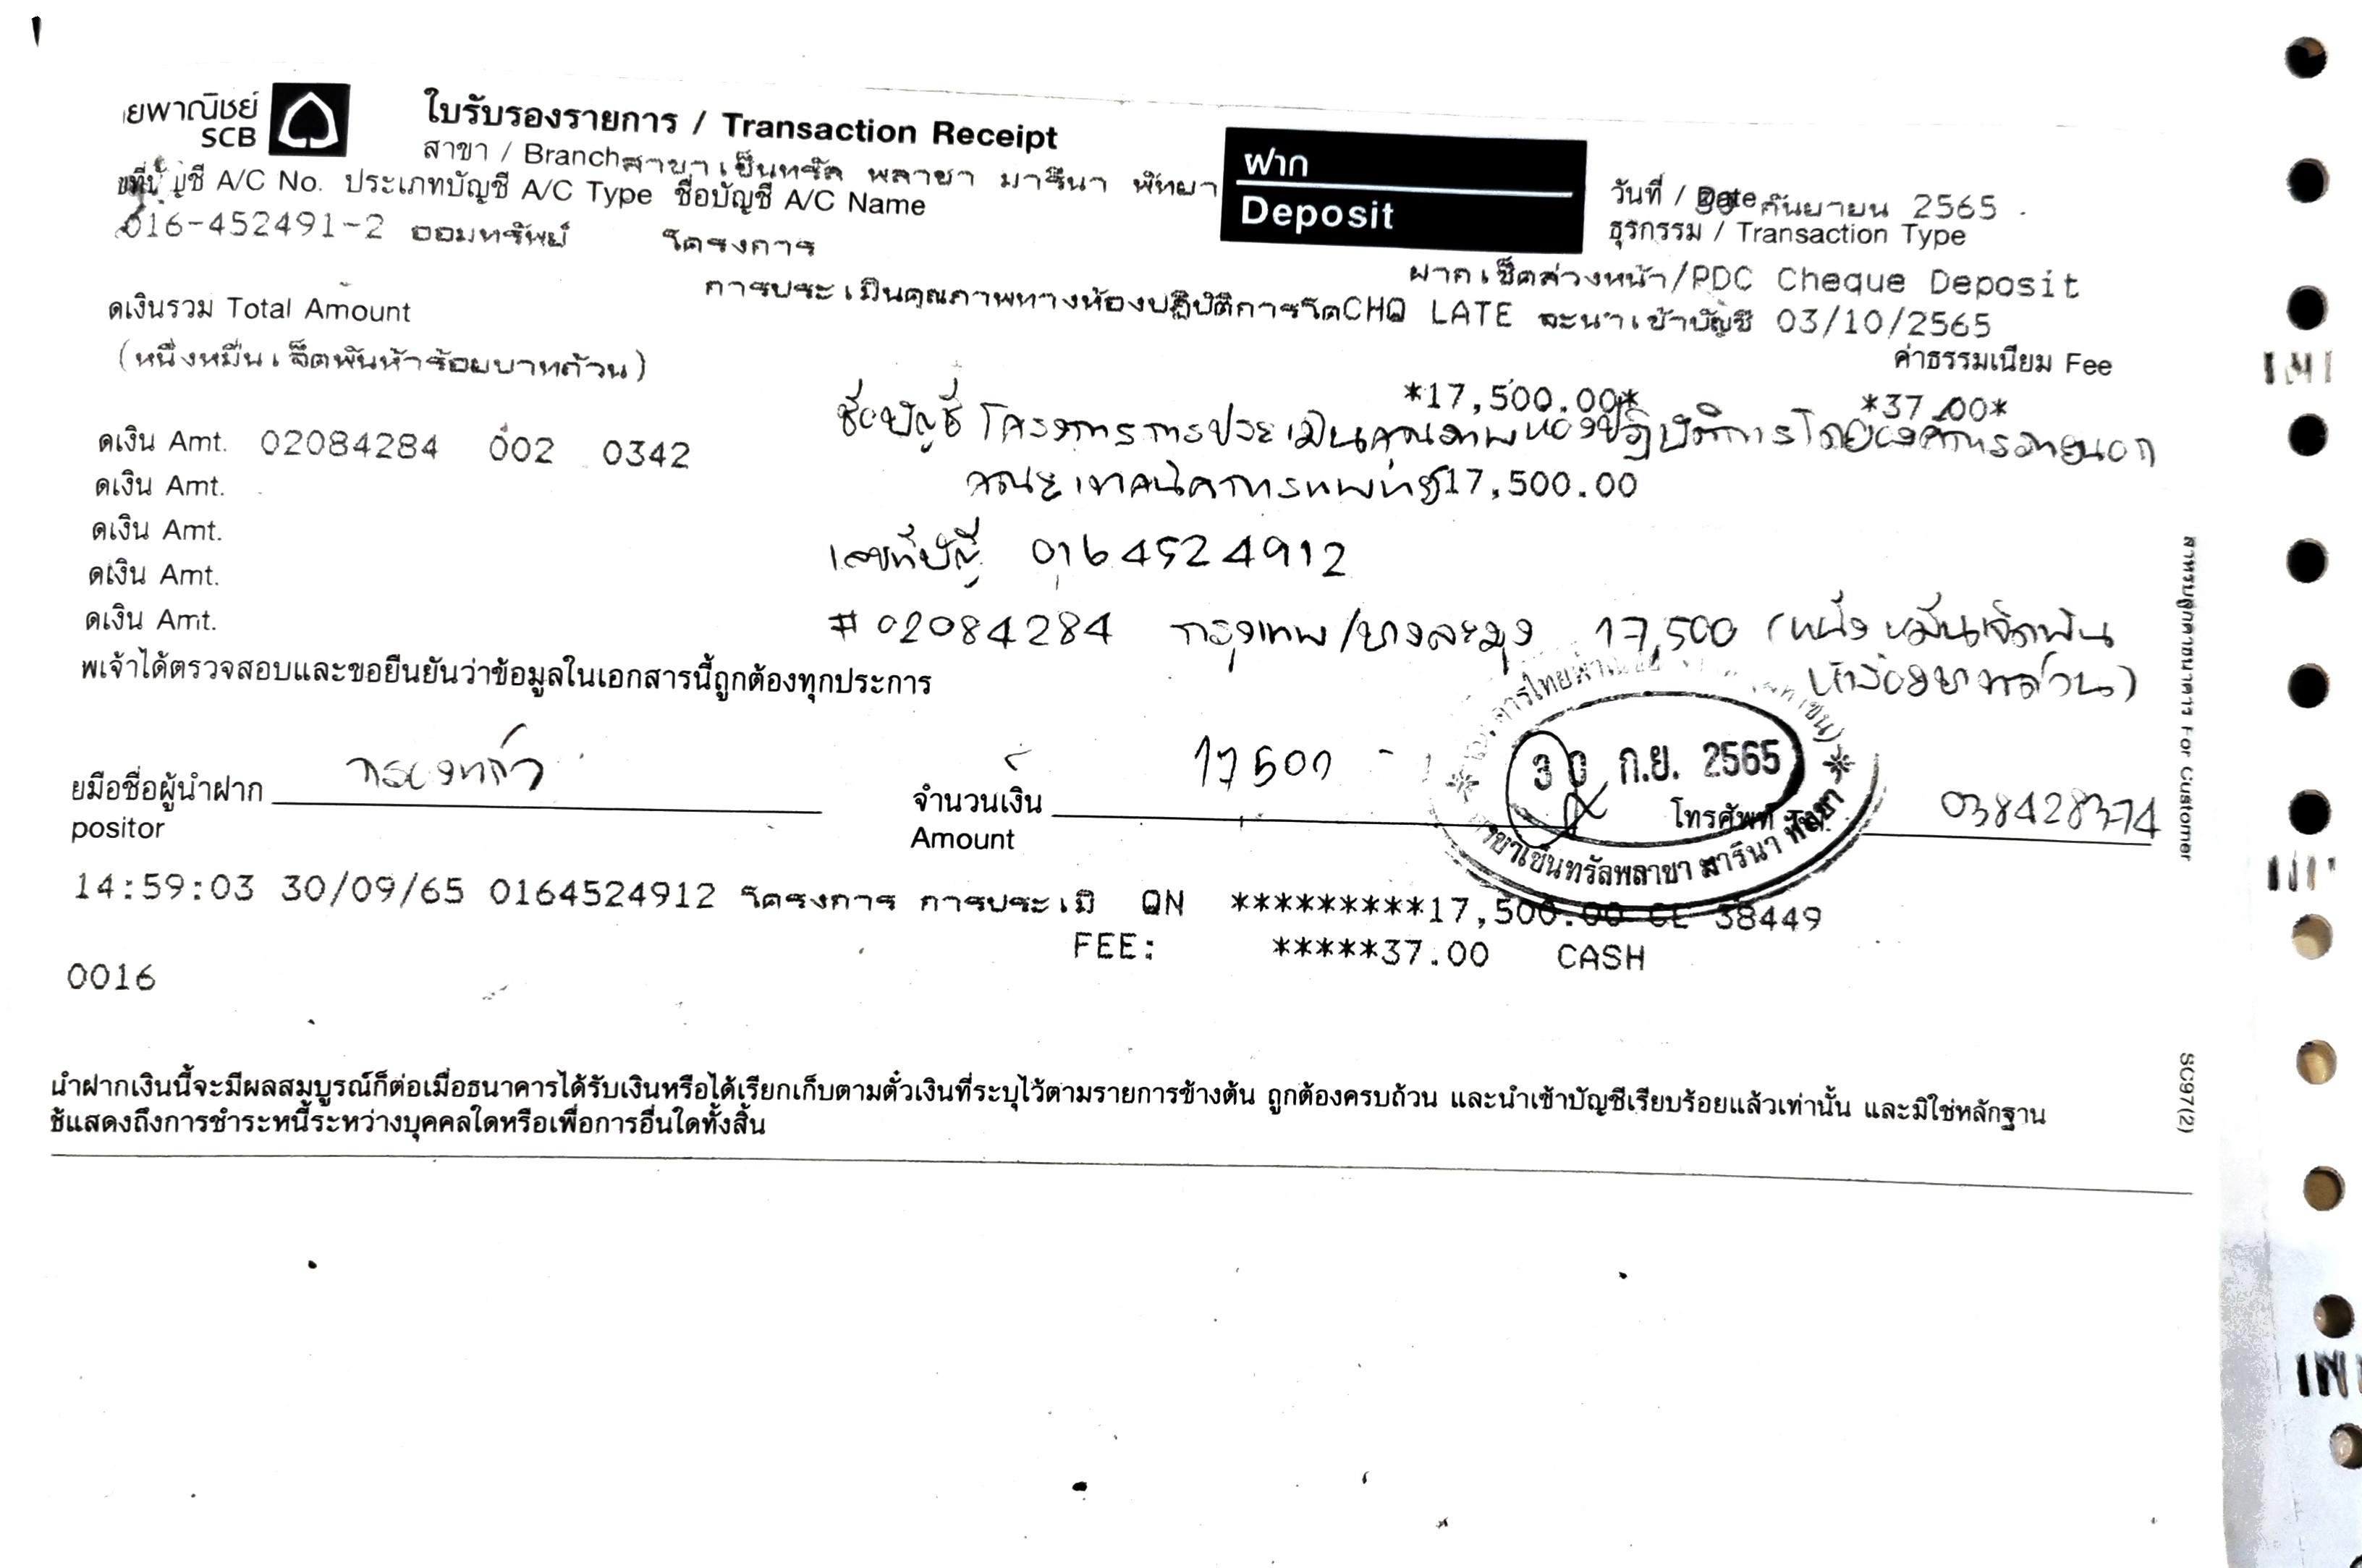 ยพาณิชย์
SCB
ใบรับรองรายการ / Transaction Receipt
สาขา / Branch สาขา เซ็นทรัล พลาซา มารีนา พัทยา
ฝาก
Deposit
วันที่ / Date 30 กันยายน 2565
ธุรกรรม / Transaction Type
ฝากเช็คล่วงหน้า/PDC Cheque Deposit
บัญชี A/C No. ประเภทบัญชี A/C Type ชื่อบัญชี A/C Name
016-452491-2 ออมทรัพย์ โครงการ
การประเมินคุณภาพทางห้องปฏิบัติการโดCHQ LATE จะนำเข้าบัญชี 03/10/2565
ดเงินรวม Total Amount
ค่าธรรมเนียม Fee
(หนึ่งหมื่นเจ็ดพันห้าร้อยบาทถ้วน)
*17,500.00* *37.00*
ชื่อบัญชี โครงการการประเมินคุณภาพห้องปฏิบัติการโดยองค์การภายนอก
ดเงิน Amt. 02084284 002 0342
คณะเทคนิคการแพทย์ 17,500.00
ดเงิน Amt.
ดเงิน Amt.
เลขที่บัญชี 0164524912
ดเงิน Amt.
ดเงิน Amt.
# 02084284 กรุงเทพ/บางละมุง 17,500 (หนึ่งหมื่นเจ็ดพัน
ห้าร้อยบาทถ้วน)
พเจ้าได้ตรวจสอบและขอยืนยันว่าข้อมูลในเอกสารนี้ถูกต้องทุกประการ
30 ก.ย. 2565
สาขาเซ็นทรัลพลาซา มารีนา พัทยา
ยมือชื่อผู้นำฝาก
positor
จำนวนเงิน 17500 -
Amount
โทรศัพท์ 038428374
14:59:03 30/09/65 0164524912 โครงการ การประเมิ QN *********17,500.00 CL 38449
FEE: *****37.00 CASH
0016
นำฝากเงินนี้จะมีผลสมบูรณ์ก็ต่อเมื่อธนาคารได้รับเงินหรือได้เรียกเก็บตามตั๋วเงินที่ระบุไว้ตามรายการข้างต้น ถูกต้องครบถ้วน และนำเข้าบัญชีเรียบร้อยแล้วเท่านั้น และมิใช่หลักฐาน
ช้แสดงถึงการชำระหนี้ระหว่างบุคคลใดหรือเพื่อการอื่นใดทั้งสิ้น
สำหรับลูกค้าธนาคาร For Customer
SC97(2)